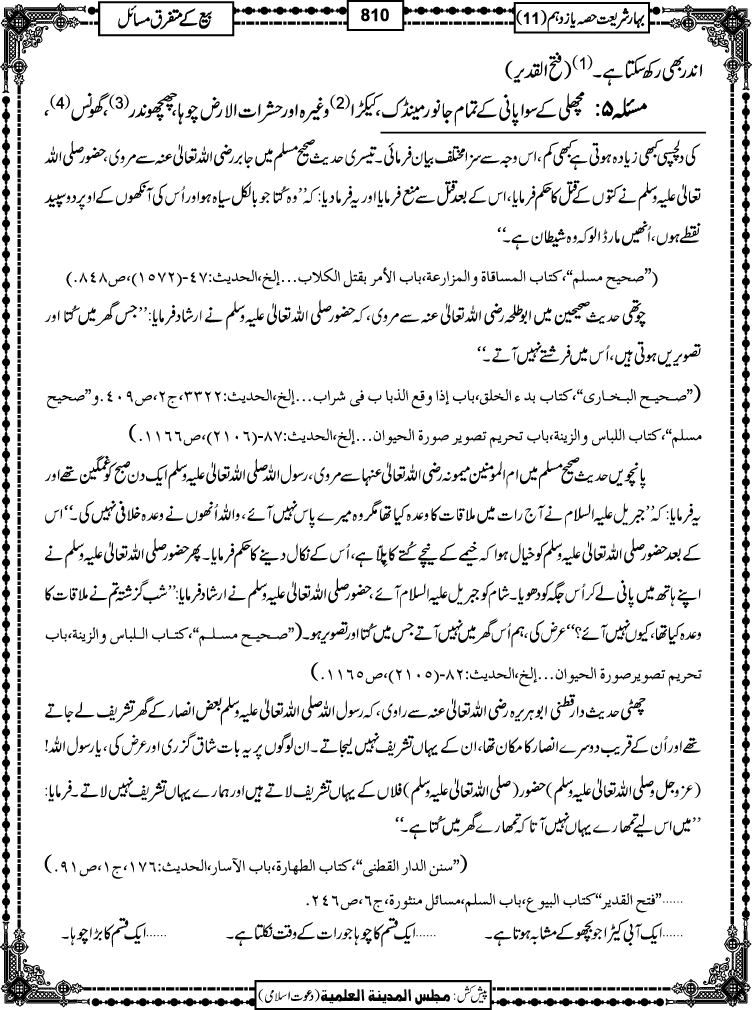 بہارِ شریعت حصہ یازدہم (11)
810
بیع کے متفرق مسائل
اندر بھی رکھ سکتا ہے۔(1) (فتح القدیر)
مسئلہ ۵: مچھلی کے سوا پانی کے تمام جانور مینڈک، کیکڑا(2) وغیرہ اور حشرات الارض چوہا، چھچھوندر(3)، گھونس(4)،
کی دلچسپی کبھی زیادہ ہوتی ہے کبھی کم، اس وجہ سے سزا مختلف بیان فرمائی۔ تیسری حدیث صحیح مسلم میں جابر رضی اللہ تعالیٰ عنہ سے مروی، حضور صلی اللہ
تعالیٰ علیہ وسلم نے کتوں کے قتل کا حکم فرمایا، اس کے بعد قتل سے منع فرمایا اور یہ فرما دیا: کہ ’’وہ کُتا جو بالکل سیاہ ہو اور اُس کی آنکھوں کے اوپر دو سپید
نقطے ہوں، اُنھیں مار ڈالو کہ وہ شیطان ہے۔‘‘
(”صحیح مسلم“، کتاب المساقاة والمزارعة، باب الأمر بقتل الکلاب...إلخ، الحدیث:۴۷-(۱۵۷۲)، ص۸۴۸.)
چوتھی حدیث صحیحین میں ابو طلحہ رضی اللہ تعالیٰ عنہ سے مروی، کہ حضور صلی اللہ تعالیٰ علیہ وسلم نے ارشاد فرمایا: ’’جس گھر میں کُتا اور
تصویریں ہوتی ہیں، اُس میں فرشتے نہیں آتے۔‘‘
(”صحیح البخاری“، کتاب بدء الخلق، باب إذا وقع الذباب فی شراب...إلخ، الحدیث:۳۳۲۲، ج۲، ص۴۰۹. و”صحیح
مسلم“، کتاب اللباس والزینة، باب تحریم تصویر صورة الحیوان...إلخ، الحدیث:۸۷-(۲۱۰۶)، ص۱۱۶۶.)
پانچویں حدیث صحیح مسلم میں ام المومنین میمونہ رضی اللہ تعالیٰ عنہا سے مروی، رسول اللہ صلی اللہ تعالیٰ علیہ وسلم ایک دن صبح کو غمگین تھے اور
یہ فرمایا: کہ ’’جبریل علیہ السلام نے آج رات میں ملاقات کا وعدہ کیا تھا مگر وہ میرے پاس نہیں آئے، واللہ اُنھوں نے وعدہ خلافی نہیں کی۔‘‘ اس
کے بعد حضور صلی اللہ تعالیٰ علیہ وسلم کو خیال ہوا کہ خیمے کے نیچے کُتے کا پلّا ہے، اُس کے نکال دینے کا حکم فرمایا۔ پھر حضور صلی اللہ تعالیٰ علیہ وسلم نے
اپنے ہاتھ میں پانی لے کر اُس جگہ کو دھویا۔ شام کو جبریل علیہ السلام آئے، حضور صلی اللہ تعالیٰ علیہ وسلم نے ارشاد فرمایا: ’’شب گزشتہ تم نے ملاقات کا
وعدہ کیا تھا، کیوں نہیں آئے؟‘‘ عرض کی، ہم اُس گھر میں نہیں آتے جس میں کُتا اور تصویر ہو۔ (”صحیح مسلم“، کتاب اللباس والزینة، باب
تحریم تصویر صورة الحیوان...إلخ، الحدیث:۸۲-(۲۱۰۵)، ص۱۱۶۵.)
چھٹی حدیث دارقطنی ابو ہریرہ رضی اللہ تعالیٰ عنہ سے راوی، کہ رسول اللہ صلی اللہ تعالیٰ علیہ وسلم بعض انصار کے گھر تشریف لے جاتے
تھے اور اُن کے قریب دوسرے انصار کا مکان تھا، ان کے یہاں تشریف نہیں لیجاتے۔ ان لوگوں پر یہ بات شاق گزری اور عرض کی، یا رسول اللہ!
(عزوجل وصلی اللہ تعالیٰ علیہ وسلم) حضور (صلی اللہ تعالیٰ علیہ وسلم) فلاں کے یہاں تشریف لاتے ہیں اور ہمارے یہاں تشریف نہیں لاتے۔ فرمایا:
’’میں اس لیے تمھارے یہاں نہیں آتا کہ تمھارے گھر میں کُتا ہے۔‘‘
(”سنن الدار القطنی“، کتاب الطھارة، باب الآسار، الحدیث:۱۷۶، ج۱، ص۹۱.)
......”فتح القدیر“ کتاب البیوع، باب السلم، مسائل منثورة، ج۶، ص۲۴۶.
......ایک آبی کیڑا جو بچھو کے مشابہ ہوتا ہے۔ ......ایک قسم کا چوہا جو رات کے وقت نکلتا ہے۔ ......ایک قسم کا بڑا چوہا۔
پیش کش: مجلس المدینة العلمیة (دعوتِ اسلامی)